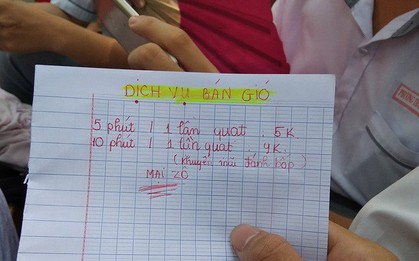 DỊCH VỤ BÁN GIÓ
5 phút / 1 lần quạt . 5K
10 phút / 1 lần quạt 9K
(khuyến mãi đánh bốp)
MẠI ZÔ